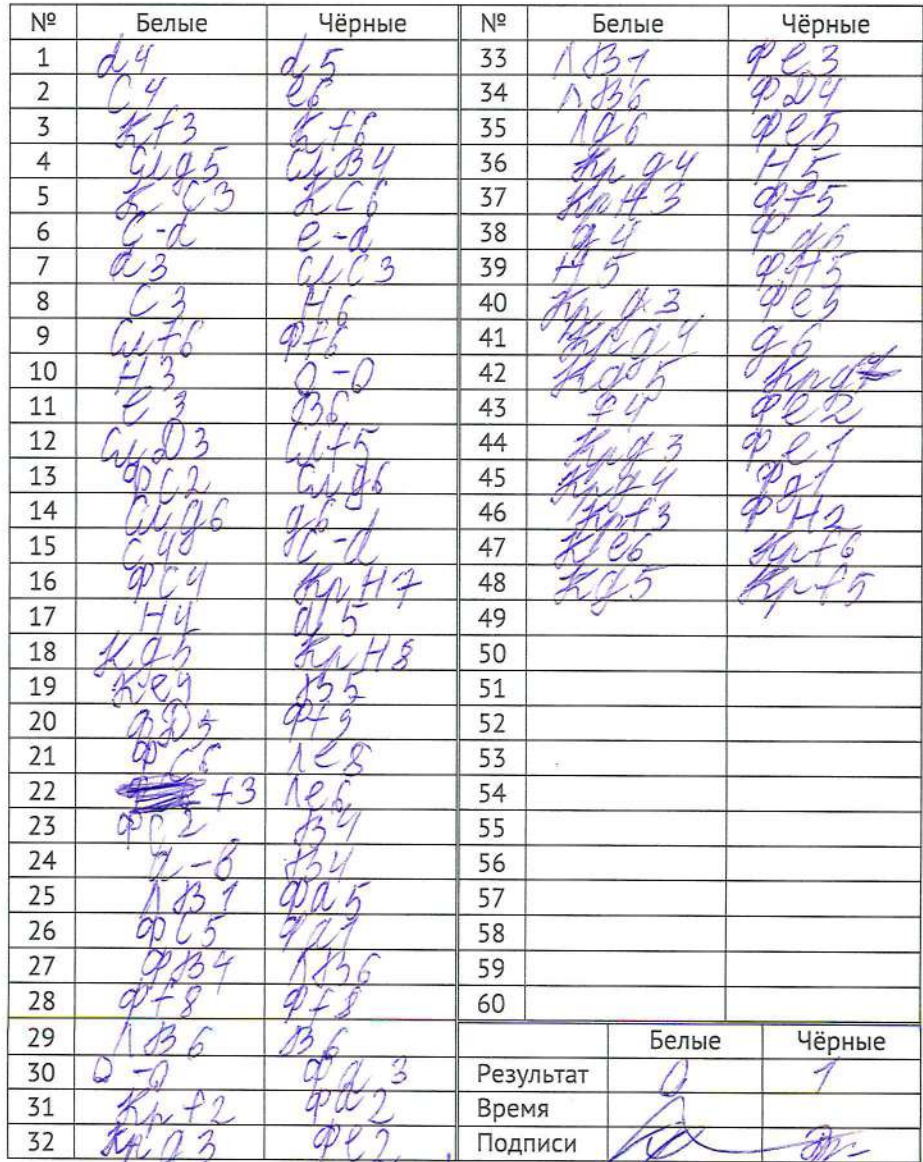 № Белые Чёрные
1 d4 d5
2 C4 e6
3 Kf3 Kf6
4 Слg5 СлB4
5 KC3 KC6
6 C-d e-d
7 a3 СлC3
8 C3 H6
9 Слf6 Фf6
10 H3 0-0
11 e3 B6
12 СлD3 Слf5
13 ФC2 Слg6
14 Слg6 g6
15 C4 C-d
16 ФC4 КрH7
17 H4 a5
18 Kg5 КрH8
19 Ke4 B5
20 ФD5
21 ФC6 Лe8
22 f3 Лe6
23 ФC2 B4
24 a-B B4
25 ЛB1 Фa5
26 ФC5 Фa1
27 ФB4 ЛB6
28 Фf8 Фf8
29 ЛB6 B6
30 0-0 Фa3
31 Крf2 Фa2
32 Крg3 Фe2
№ Белые Чёрные
33 ЛB1 Фe3
34 ЛB6 ФD4
35 Лg6 Фe5
36 Крg4 H5
37 КрH3 Фf5
38 g4 Фg6
39 H5 ФH5
40 Крg3 Фe5
41 Крg4 g6
42 Kg5 Крg7
43 f4 Фe2
44 Крg3 Фe1
45 Крg4 Фg1
46 Крf3 ФH2
47 Ke6 Крf6
48 Kg5 Крf5
49
50
51
52
53
54
55
56
57
58
59
60
Белые Чёрные
Результат 0 1
Время
Подписи